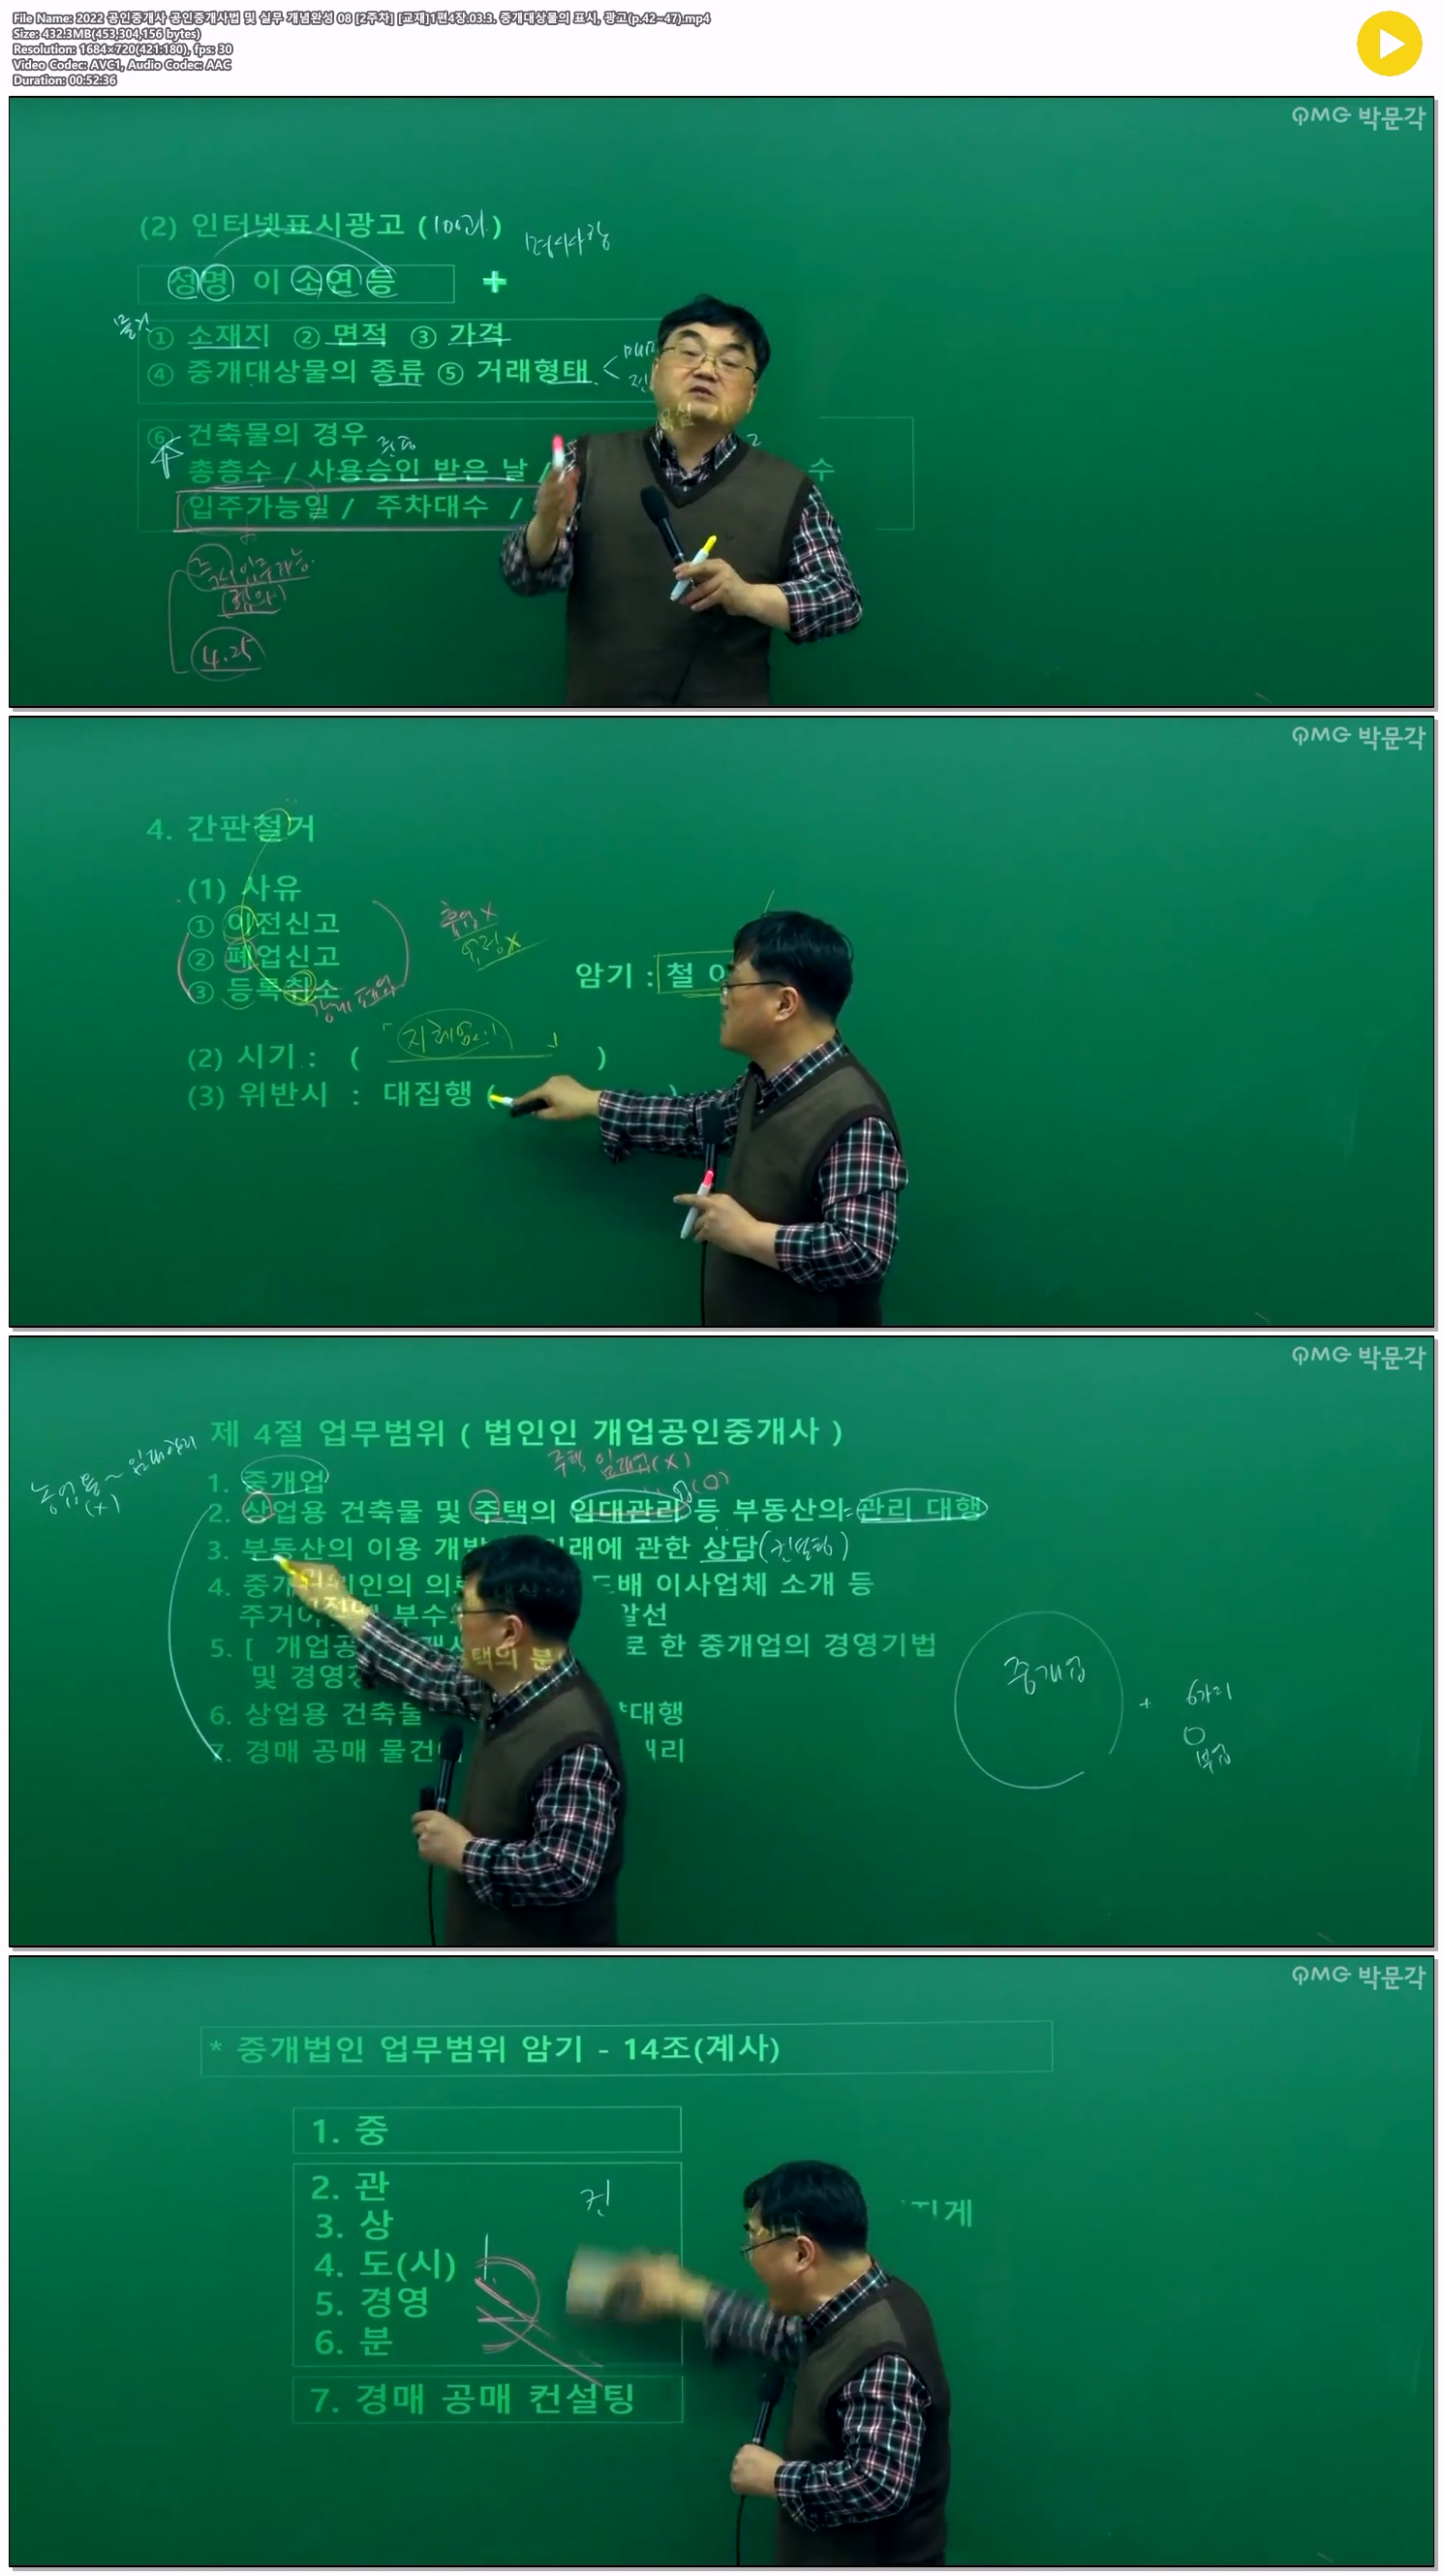 File Name: 2022 공인중개사 공인중개사법 및 실무 개념완성 08 [2주차] [교재]1편4장:03.3. 중개대상물의 표시, 광고(p.42~47).mp4
Size: 432.3MB(453,304,156 bytes)
Resolution: 1684×720(421:180), fps: 30
Video Codec: AVC1, Audio Codec: AAC
Duration: 00:52:36
PMG 박문각
(2) 인터넷표시광고 (100과)
성명 이 소연등 +
물건
① 소재지 ② 면적 ③ 가격
④ 중개대상물의 종류 ⑤ 거래형태
⑥ 건축물의 경우
총층수 / 사용승인 받은 날 / 수
입주가능일 / 주차대수 /
즉시입주가능
(협의)
PMG 박문각
4. 간판철거
(1) 사유
① 이전신고
② 폐업신고
③ 등록취소
휴업X
암기 : 철 이
(2) 시기 : ( 지체없이 )
(3) 위반시 : 대집행 ( )
PMG 박문각
제 4절 업무범위 ( 법인인 개업공인중개사 )
주택 임대업(X)
업(O)
1. 중개업
2. 상업용 건축물 및 주택의 임대관리 등 부동산의 관리 대행
3. 부동산의 이용 개발 거래에 관한 상담(컨설팅)
4. 중개의뢰인의 의뢰 도배 이사업체 소개 등
주거이전에 부수 알선
5. [ 개업공 택의 분 로 한 중개업의 경영기법
및 경영정
6. 상업용 건축물 대행
7. 경매 공매 물건 대리
농업용 ~ 임대관리
(X)
중개업 + 6가지
PMG 박문각
* 중개법인 업무범위 암기 - 14조(계사)
1. 중
2. 관
3. 상
4. 도(시)
5. 경영
6. 분
7. 경매 공매 컨설팅
컨
게